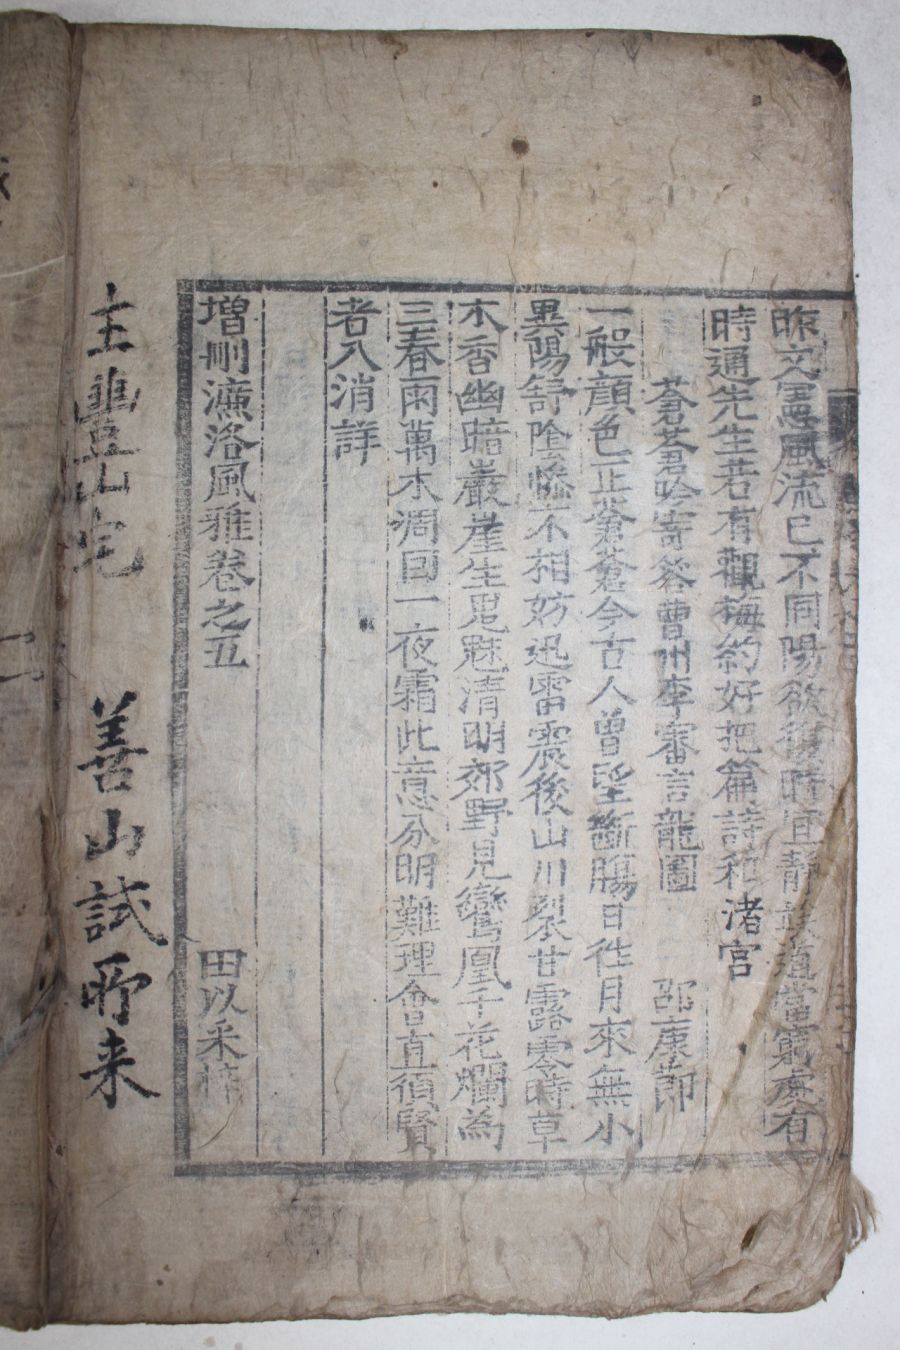 昨文憲風流已不同陽欲復時宜靜養道當窮處有
時通先生若有觀梅約好把篇詩和渚宮
蒼蒼君吟寄答曹州李審言龍圖 邵康節
一般顔色正蒼蒼今古人曾望斷腸日往月來無小
異陽舒陰慘不相妨迅雷震後山川裂甘露零時草
木香幽暗巖崖生鬼魅清明郊野見鸞鳳千花爛為
三春雨萬木凋因一夜霜此意分明難理會直須賢
者入消詳
增刪濂洛風雅卷之五 田以采梓
主豊山宅 善山試所来